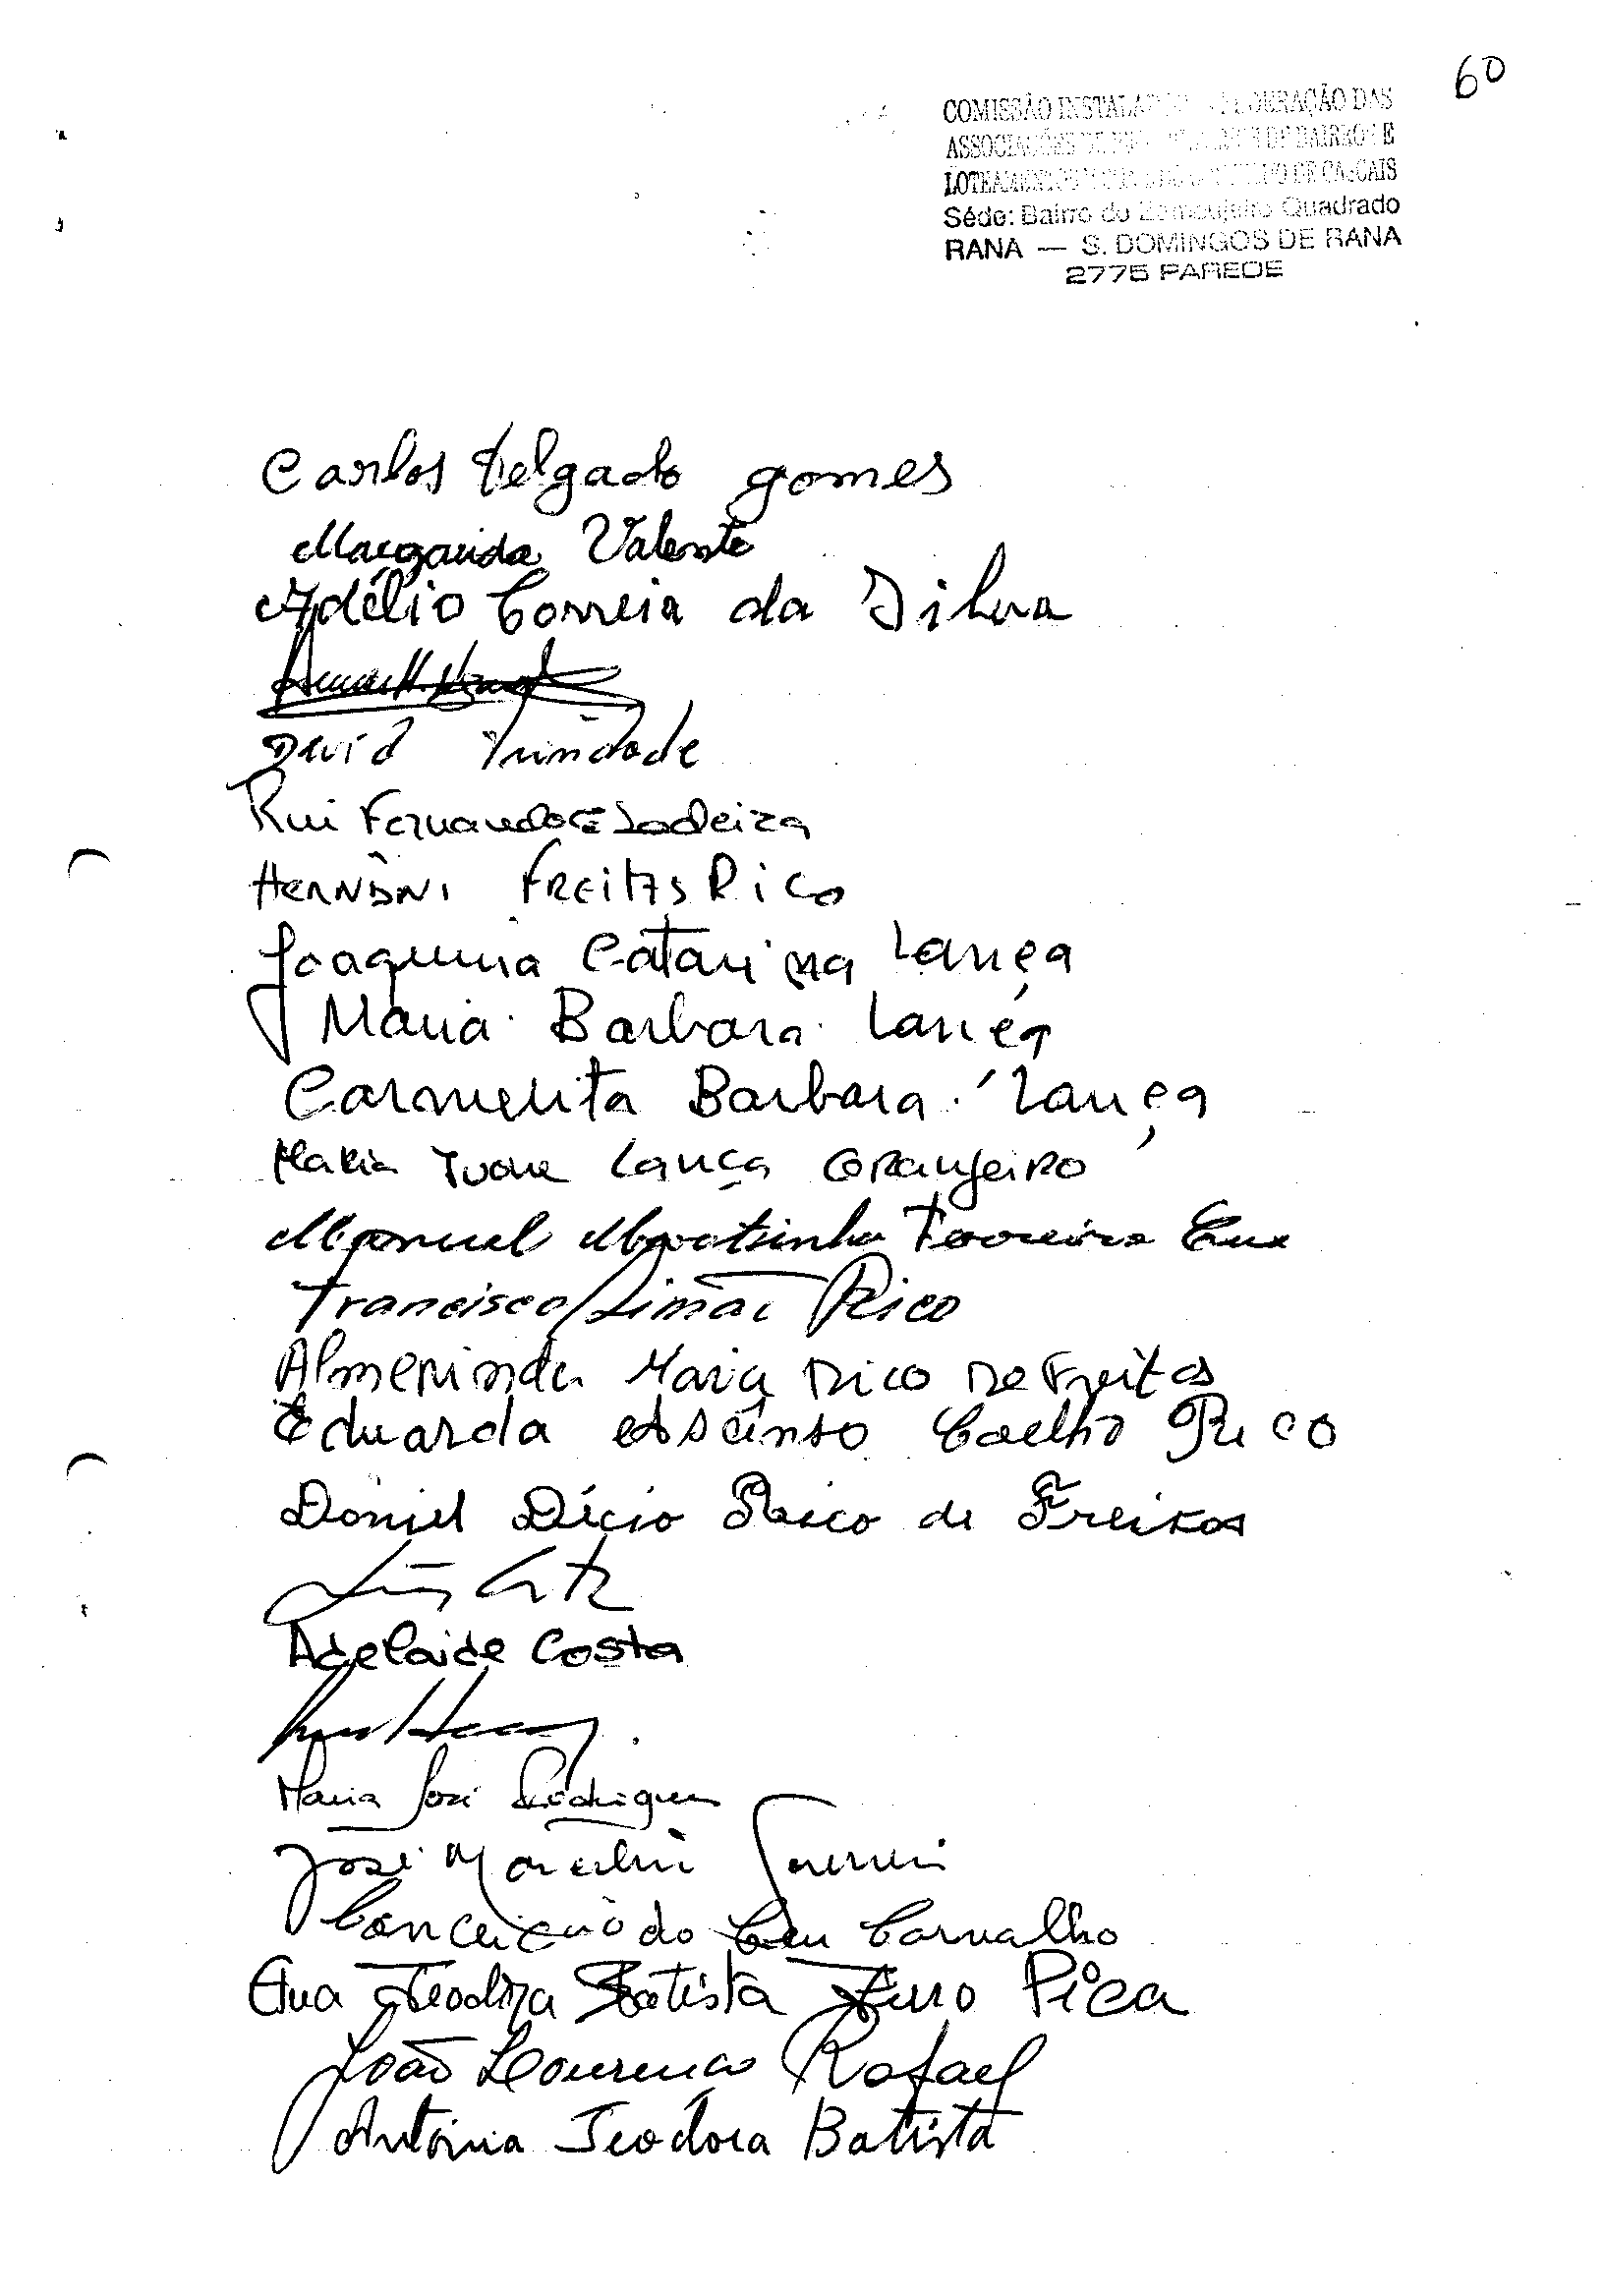 60
COMISSÃO DAS
ASSOCIAÇÕES DE DE BAIRROS E
LOTEAMENTOS DE CASCAIS
Séde: Bairro do Quadrado
RANA — S. DOMINGOS DE RANA
2775 PAREDE
Carlos Delgado gomes
Margarida Valente
Adélio Correia da Silva
David Trindade
Rui Fernando
HERNÂNI FREITAS RICO
Joaquina Catarina Lança
Maria Barbara Lança
Carmelita Barbara Lança
Maria Ivone Lança Granjeiro
Manuel Martinho Ferreira
Francisco Simão Rico
Almerinda Maria Rico De Freitas
Eduarda Ascenso Coelho Rico
Daniel Décio Rico de Freitas
Adelaide Costa
Maria José Rodrigues
José
Conceição do Ceu Carvalho
Teodora Batista Pica
João Lourenço Rafael
Antónia Teodora Batista